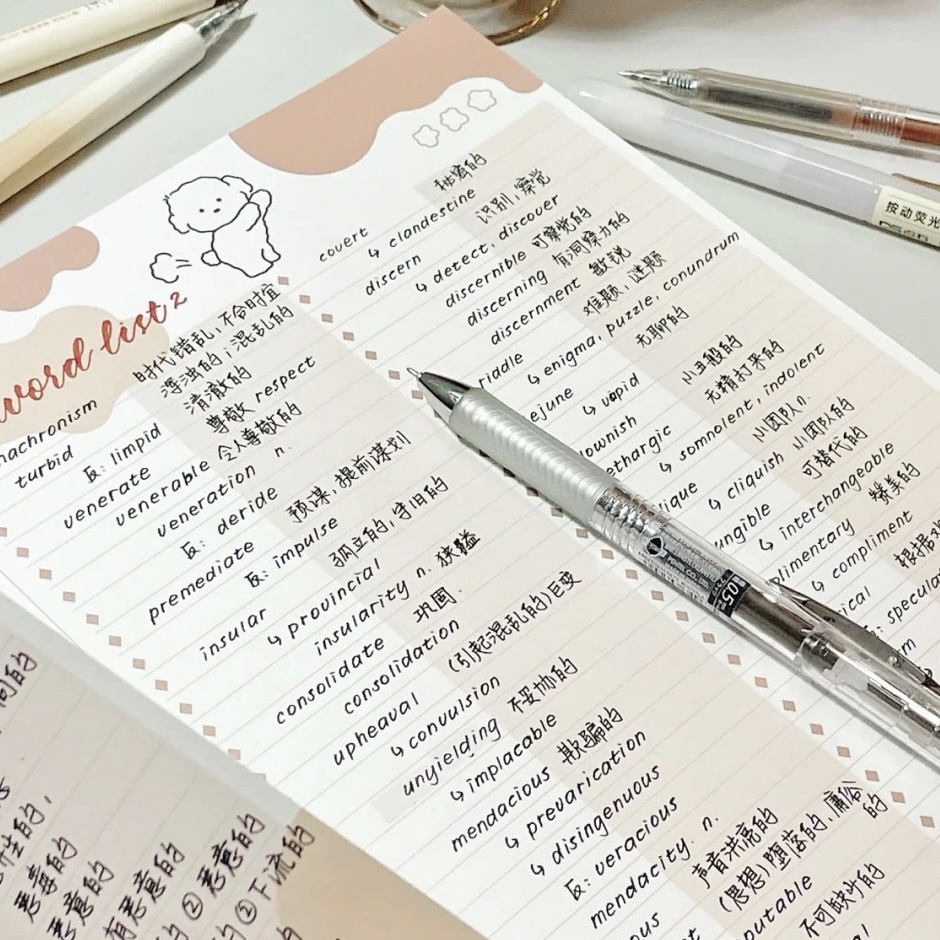 word list 2
nachronism 时代错乱,不合时宜
turbid 浑浊的;混乱的
反: limpid 清澈的
venerate 尊敬 respect
venerable 令人尊敬的
veneration n.
反: deride
premediate 预谋,提前谋划
反: impulse
insular 孤立的,守旧的
↳ provincial
insularity n. 狭隘
consolidate 巩固
consolidation
upheaval (引起混乱的)巨变
↳ convulsion
unyielding 不妥协的
↳ implacable
mendacious 欺骗的
↳ prevarication
↳ disingenuous
反: veracious
mendacity n.
covert 秘密的
↳ clandestine
discern 识别,察觉
↳ detect, discover
discernible 可察觉的
discerning 有洞察力的
discernment 敏锐
riddle 难题,谜题
↳ enigma, puzzle, conundrum
ejune 无聊的
↳ vapid
lownish 小丑般的
ethargic 无精打采的
↳ somnolent, indolent
lique 小团队n.
↳ cliquish 小团队的
ungible 可替代的
↳ interchangeable
limentary 赞美的
↳ compliment
ical 根据
: specula
m
声音洪亮的
(思想)堕落的、庸俗的
putable
不可缺少的
ous
间的
恶毒的
恶意的
有恶意的
② 恶意的
② 下流的
按动荧光
PENTEL CO., LTD.
0.5